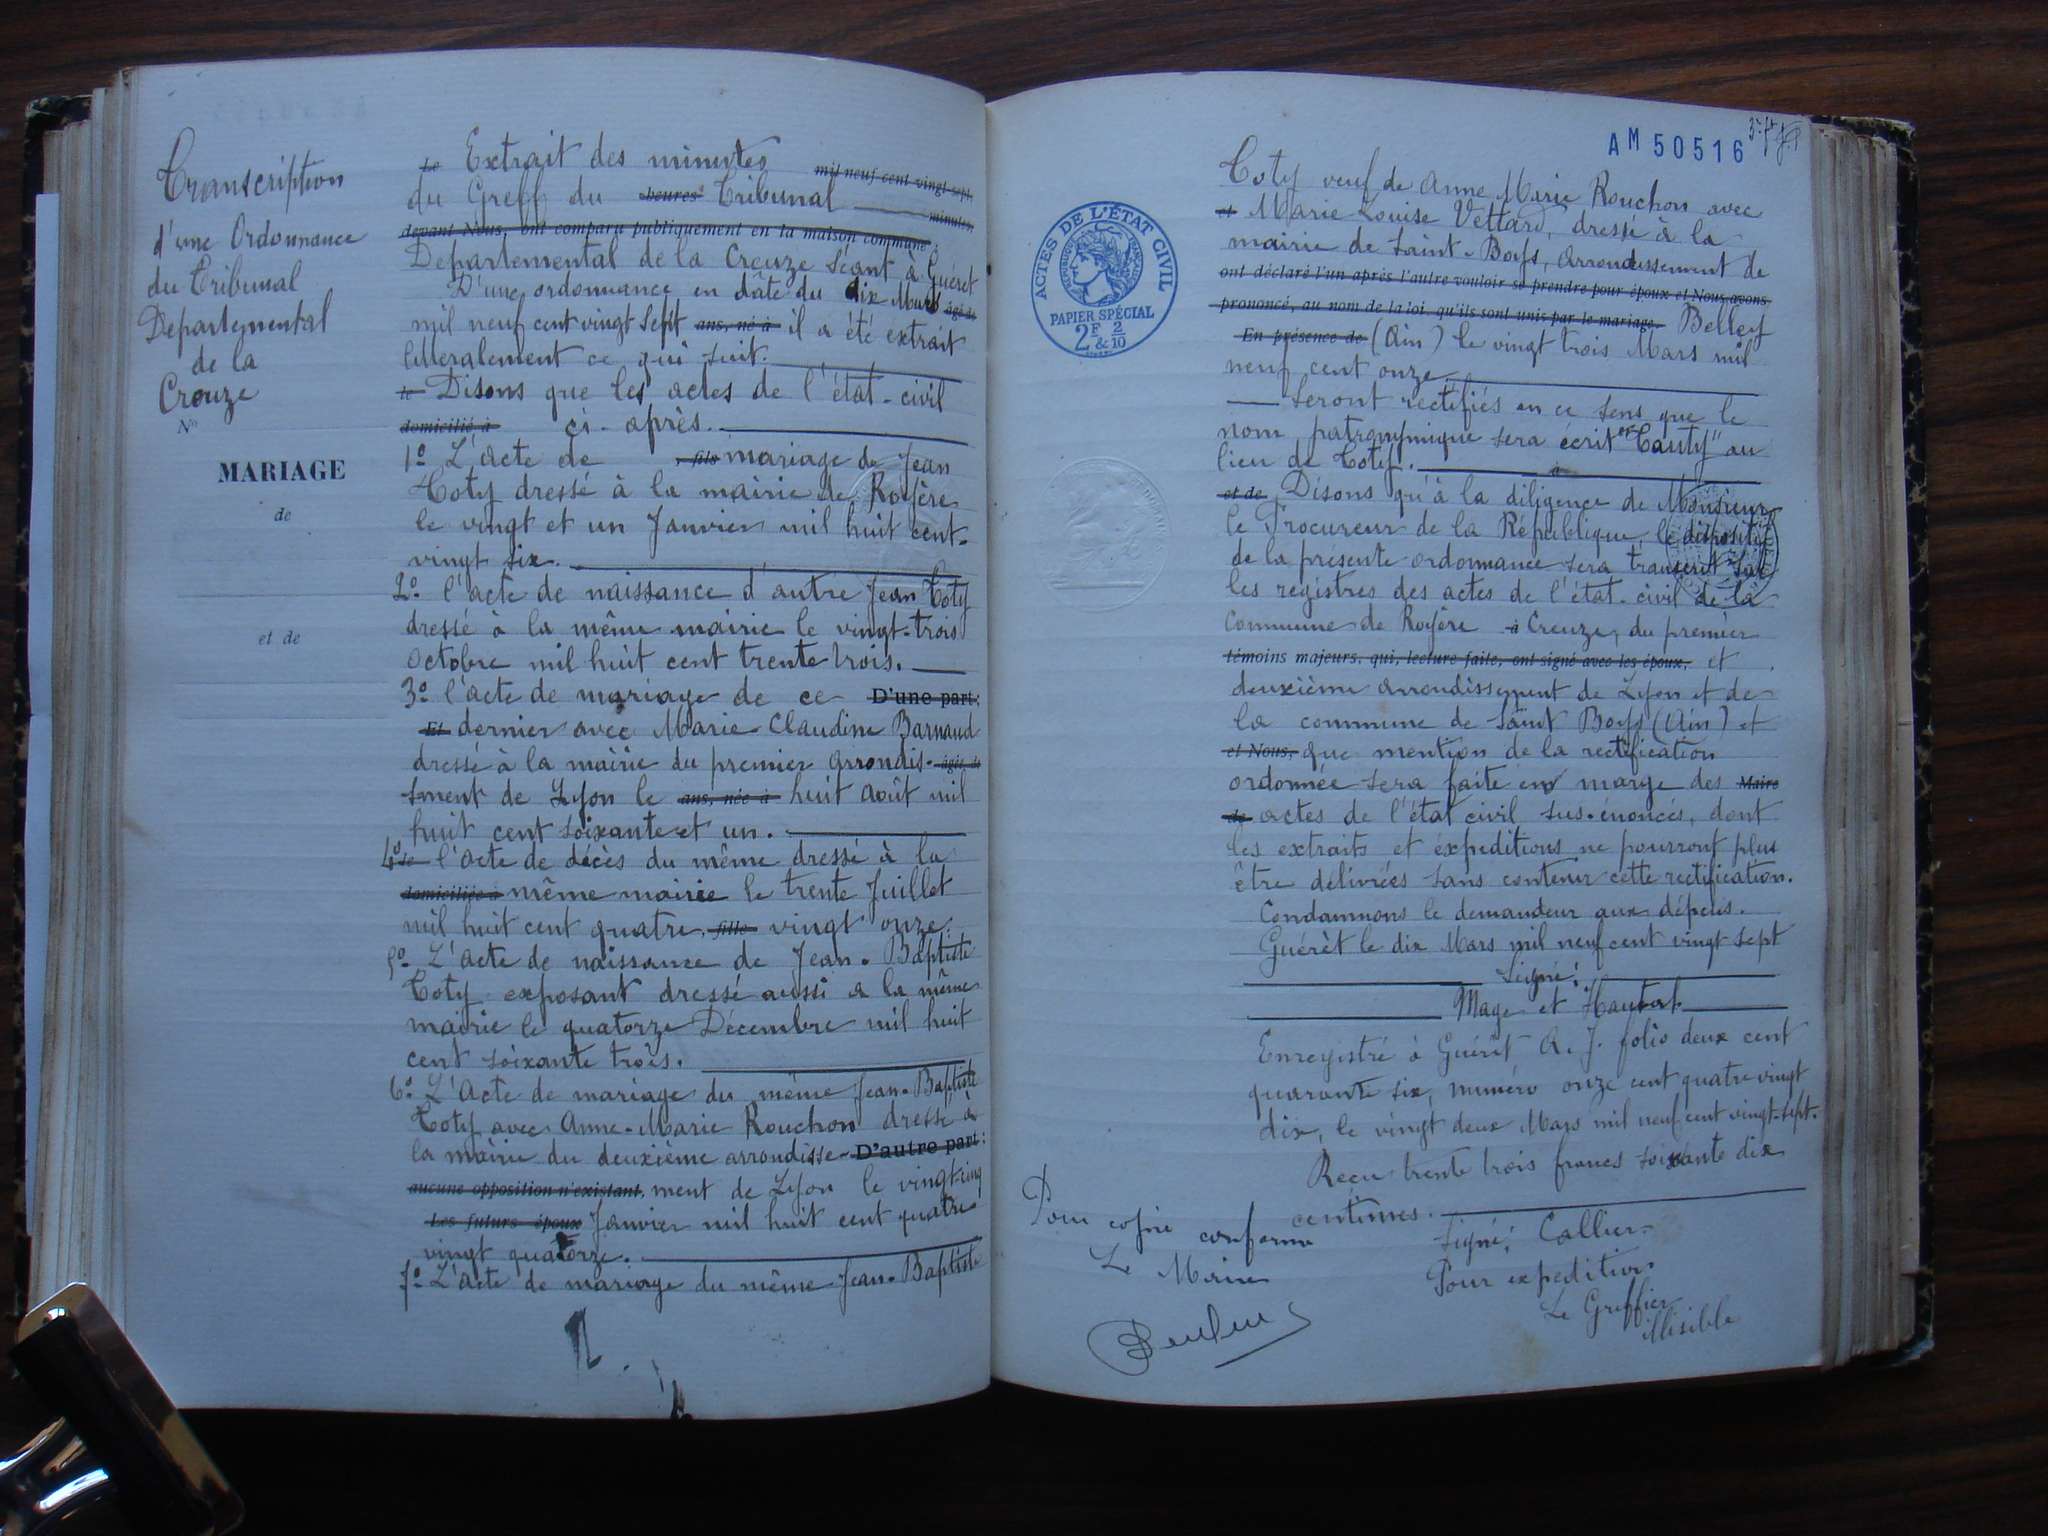 Transcription
d'une Ordonnance
du Tribunal
Departemental
de la
Creuze
N°
MARIAGE
de
et de
le Extrait des minutes
mil neuf cent vingt-sept,
du Greff du heures Tribunal
minutes,
devant Nous, ont comparu publiquement en la maison commune :
Departemental de la Creuze séant à Guéret
D'une ordonnance en dâte du dix Mars âgé de
mil neuf cent vingt sept ans, né à il a été extrait
litteralement ce qui suit.
le Disons que les actes de l'état-civil
domicilié à ci-après.
1° L'acte de , fils mariage de Jean
Coty dressé à la mairie de Royère
le vingt et un Janvier mil huit cent-
vingt six.
2° l'acte de naissance d'autre Jean Coty
dressé à la même mairie le vingt-trois
Octobre mil huit cent trente trois.
3° l'acte de mariage de ce D'une part :
Et dernier avec Marie-Claudine Barnaud
dressé à la mairie du premier arrondis- âgée de
sment de Lyon le ans, née à huit Août mil
huit cent soixante et un.
4° le l'acte de décès du même dressé à la
domiciliée à même mairie le trente Juillet
mil huit cent quatre, fille vingt onze.
5° L'acte de naissance de Jean-Baptiste
Coty exposant dressé aussi a la même
mairie le quatorze Décembre mil huit
cent soixante trois.
6° L'Acte de mariage du même Jean-Baptiste
Coty avec Anne-Marie Rouchon dressé à
la mairie du deuxième arrondisse- D'autre part :
aucune opposition n'existant, ment de Lyon le vingt-cinq
Les futurs époux Janvier mil huit cent quatre
vingt quatorze.
7° L'Acte de mariage du même Jean-Baptiste
AM 50516
ACTES DE L'ÉTAT CIVIL
RÉPUBLIQUE FRANÇAISE
PAPIER SPÉCIAL
2F & 2/10
Coty veuf de Anne Marie Rouchon avec
et Marie Louise Vettard, dressé à la
mairie de Saint-Boys, arrondissement de
ont déclaré l'un après l'autre vouloir se prendre pour époux et Nous avons
prononcé, au nom de la loi, qu'ils sont unis par le mariage. Belley
En présence de (Ain) le vingt trois Mars mil
neuf cent onze
Seront rectifiés en ce sens que le
nom patronymique sera écrit "Cauty" au
lieu de Coty.
à
et de Disons qu'à la diligence de Monsieur
le Procureur de la République, le dispositif
de la présente ordonnance sera transcrit sur
les registres des actes de l'état-civil de la
Commune de Royère à Creuze, du premier
témoins majeurs, qui, lecture faite, ont signé avec les époux, et
deuxième arrondissement de Lyon et de
la commune de Saint Boys (Ain) et
et Nous, que mention de la rectification
ordonnée sera faite en marge des Maire
de actes de l'état civil sus-énoncés, dont
les extraits et éxpeditions ne pourront plus
être délivrées sans contenir cette rectification.
Condamnons le demandeur aux dépens.
Guérèt le dix Mars mil neuf cent vingt sept
Signé :
Mage et Hautart
Enregistré à Guérèt A. J. folio deux cent
quarante six, numéro onze cent quatre vingt
dix, le vingt deux Mars mil neuf cent vingt-sept.
Reçu trente trois francs soixante dix
centimes.
Signé ; Callier.
Pour expedition
Le Greffier
Illisible
Pour copie conforme
Le Maire